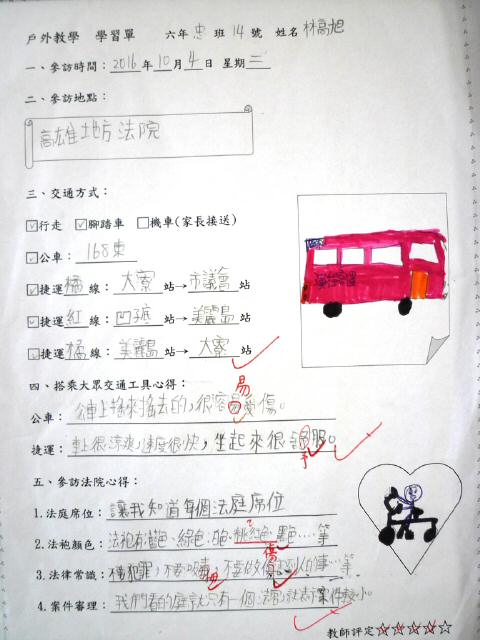 戶外教學 學習單 六年忠班14號 姓名林高旭
一、參訪時間：2016年10月4日 星期三
二、參訪地點：
高雄地方法院
三、交通方式：
☑行走 ☑腳踏車 □機車(家長接送)
☑公車：168東
☑捷運橘線：大寮站→市議會站
☑捷運紅線：凹子底站→美麗島站
☑捷運橘線：美麗島站→大寮站
四、搭乘大眾交通工具心得：
易
公車：公車上搖來搖去的，很容易受傷。
捷運：車上很涼爽，速度很快，坐起來很舒服。
五、參訪法院心得：
1.法庭席位：讓我知道每個法庭席位
2.法袍顏色：法袍有藍色、綠色、白色、桃紅色、黑色…等
傷
3.法律常識：犯罪，不要吸毒，不要做傷到別人的事…等
4.案件審理：我們看的庭就只有一個法官，就表示案件較小。
教師評定☆☆☆☆☆